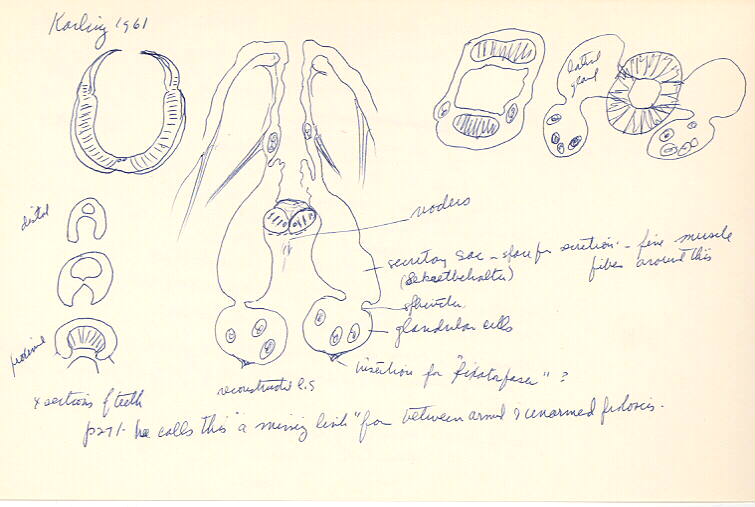 Karling 1961
lateral
gland
distal
noders
secretory sac - space for secretion - fine muscle
(Sekretbehalter) fibers around this
sphincter
glandular cells
proximal
insertion for "fixatorfaser" ?
x sections of teeth
reconstructed l.s
p271. he calls this "a missing link" form between armed & unarmed proboscis.